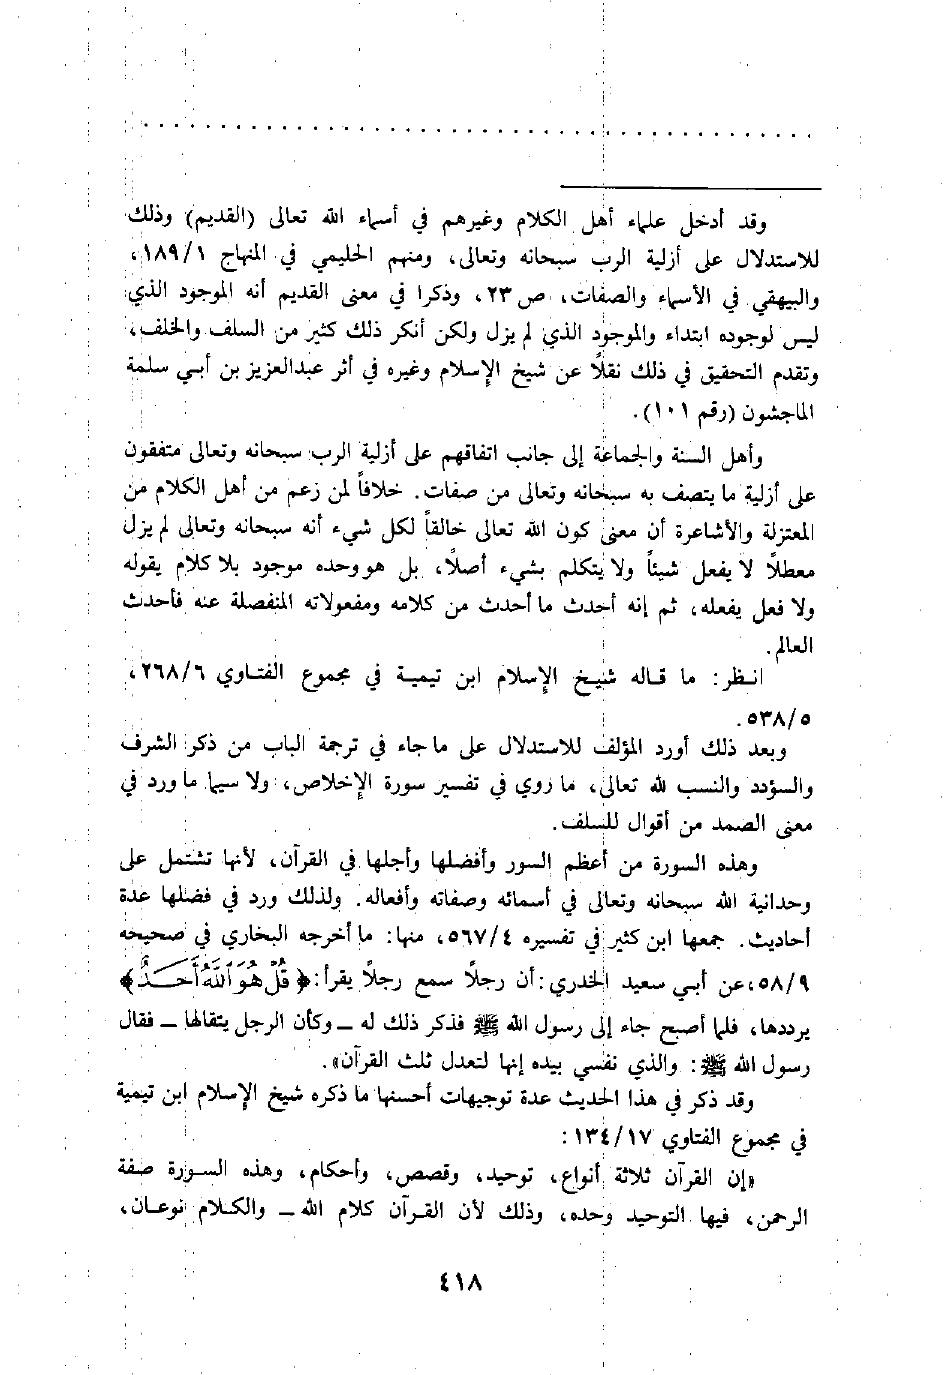 وقد أدخل علماء أهل الكلام وغيرهم في أسماء الله تعالى (القديم) وذلك
للاستدلال على أزلية الرب سبحانه وتعالى، ومنهم الحليمي في المنهاج ١٨٩/١،
والبيهقي في الأسماء والصفات، ص ٢٣، وذكرا في معنى القديم أنه الموجود الذي
ليس لوجوده ابتداء والموجود الذي لم يزل ولكن أنكر ذلك كثير من السلف والخلف،
وتقدم التحقيق في ذلك نقلاً عن شيخ الإسلام وغيره في أثر عبدالعزيز بن أبي سلمة
الماجشون (رقم ١٠١).
وأهل السنة والجماعة إلى جانب اتفاقهم على أزلية الرب سبحانه وتعالى متفقون
على أزلية ما يتصف به سبحانه وتعالى من صفات. خلافاً لمن زعم من أهل الكلام من
المعتزلة والأشاعرة أن معنى كون الله تعالى خالقاً لكل شيء أنه سبحانه وتعالى لم يزل
معطلاً لا يفعل شيئاً ولا يتكلم بشيء أصلاً، بل هو وحده موجود بلا كلام يقوله
ولا فعل يفعله، ثم إنه أحدث ما أحدث من كلامه ومفعولاته المنفصلة عنه فأحدث
العالم.
انظر: ما قاله شيخ الإسلام ابن تيمية في مجموع الفتاوي ٢٦٨/٦،
٥٣٨/٥.
وبعد ذلك أورد المؤلف للاستدلال على ما جاء في ترجمة الباب من ذكر الشرف
والسؤدد والنسب لله تعالى، ما روي في تفسير سورة الإخلاص، ولا سيما ما ورد في
معنى الصمد من أقوال للسلف.
وهذه السورة من أعظم السور وأفضلها وأجلها في القرآن، لأنها تشتمل على
وحدانية الله سبحانه وتعالى في أسمائه وصفاته وأفعاله. ولذلك ورد في فضلها عدة
أحاديث. جمعها ابن كثير في تفسيره ٥٦٧/٤، منها: ما أخرجه البخاري في صحيحه
٥٨/٩، عن أبي سعيد الخدري: أن رجلاً سمع رجلاً يقرأ: ﴿قُلْ هُوَ اللَّهُ أَحَدٌ﴾
يرددها، فلما أصبح جاء إلى رسول الله ﷺ فذكر ذلك له ــ وكأن الرجل يتقالها ــ فقال
رسول الله ﷺ: والذي نفسي بيده إنها لتعدل ثلث القرآن».
وقد ذكر في هذا الحديث عدة توجيهات أحسنها ما ذكره شيخ الإسلام ابن تيمية
في مجموع الفتاوي ١٣٤/١٧:
«إن القرآن ثلاثة أنواع، توحيد، وقصص، وأحكام، وهذه السورة صفة
الرحمن، فيها التوحيد وحده، وذلك لأن القرآن كلام الله ــ والكلام نوعان،
٤١٨